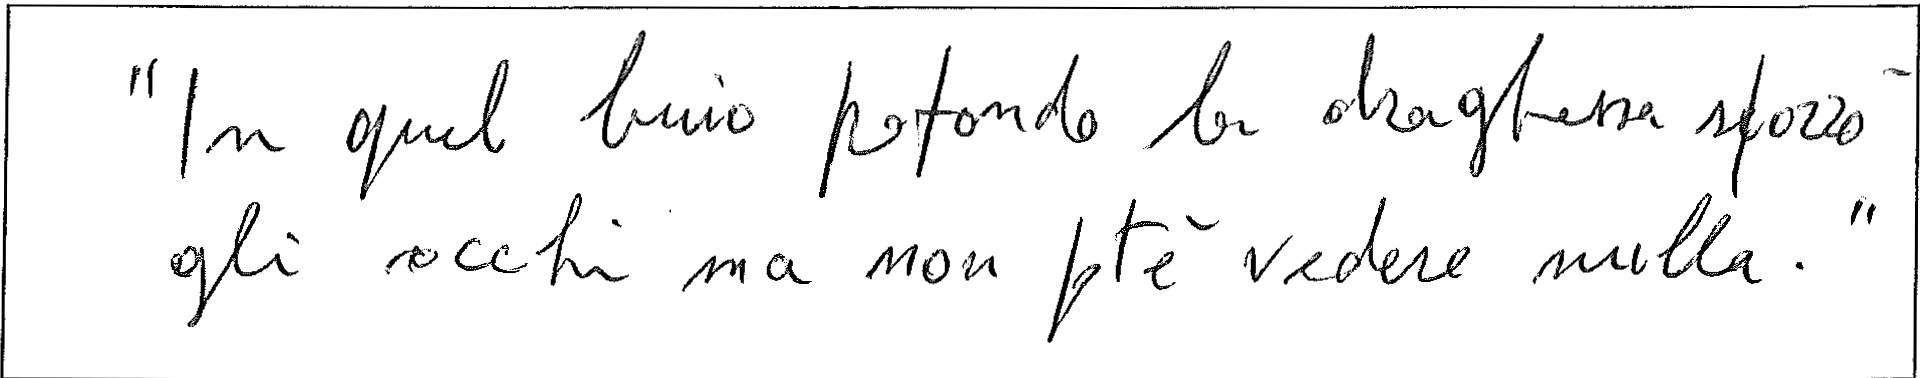 "In quel buio pofondo la draghessa spozzò
gli occhi ma non ptè vedere nulla."